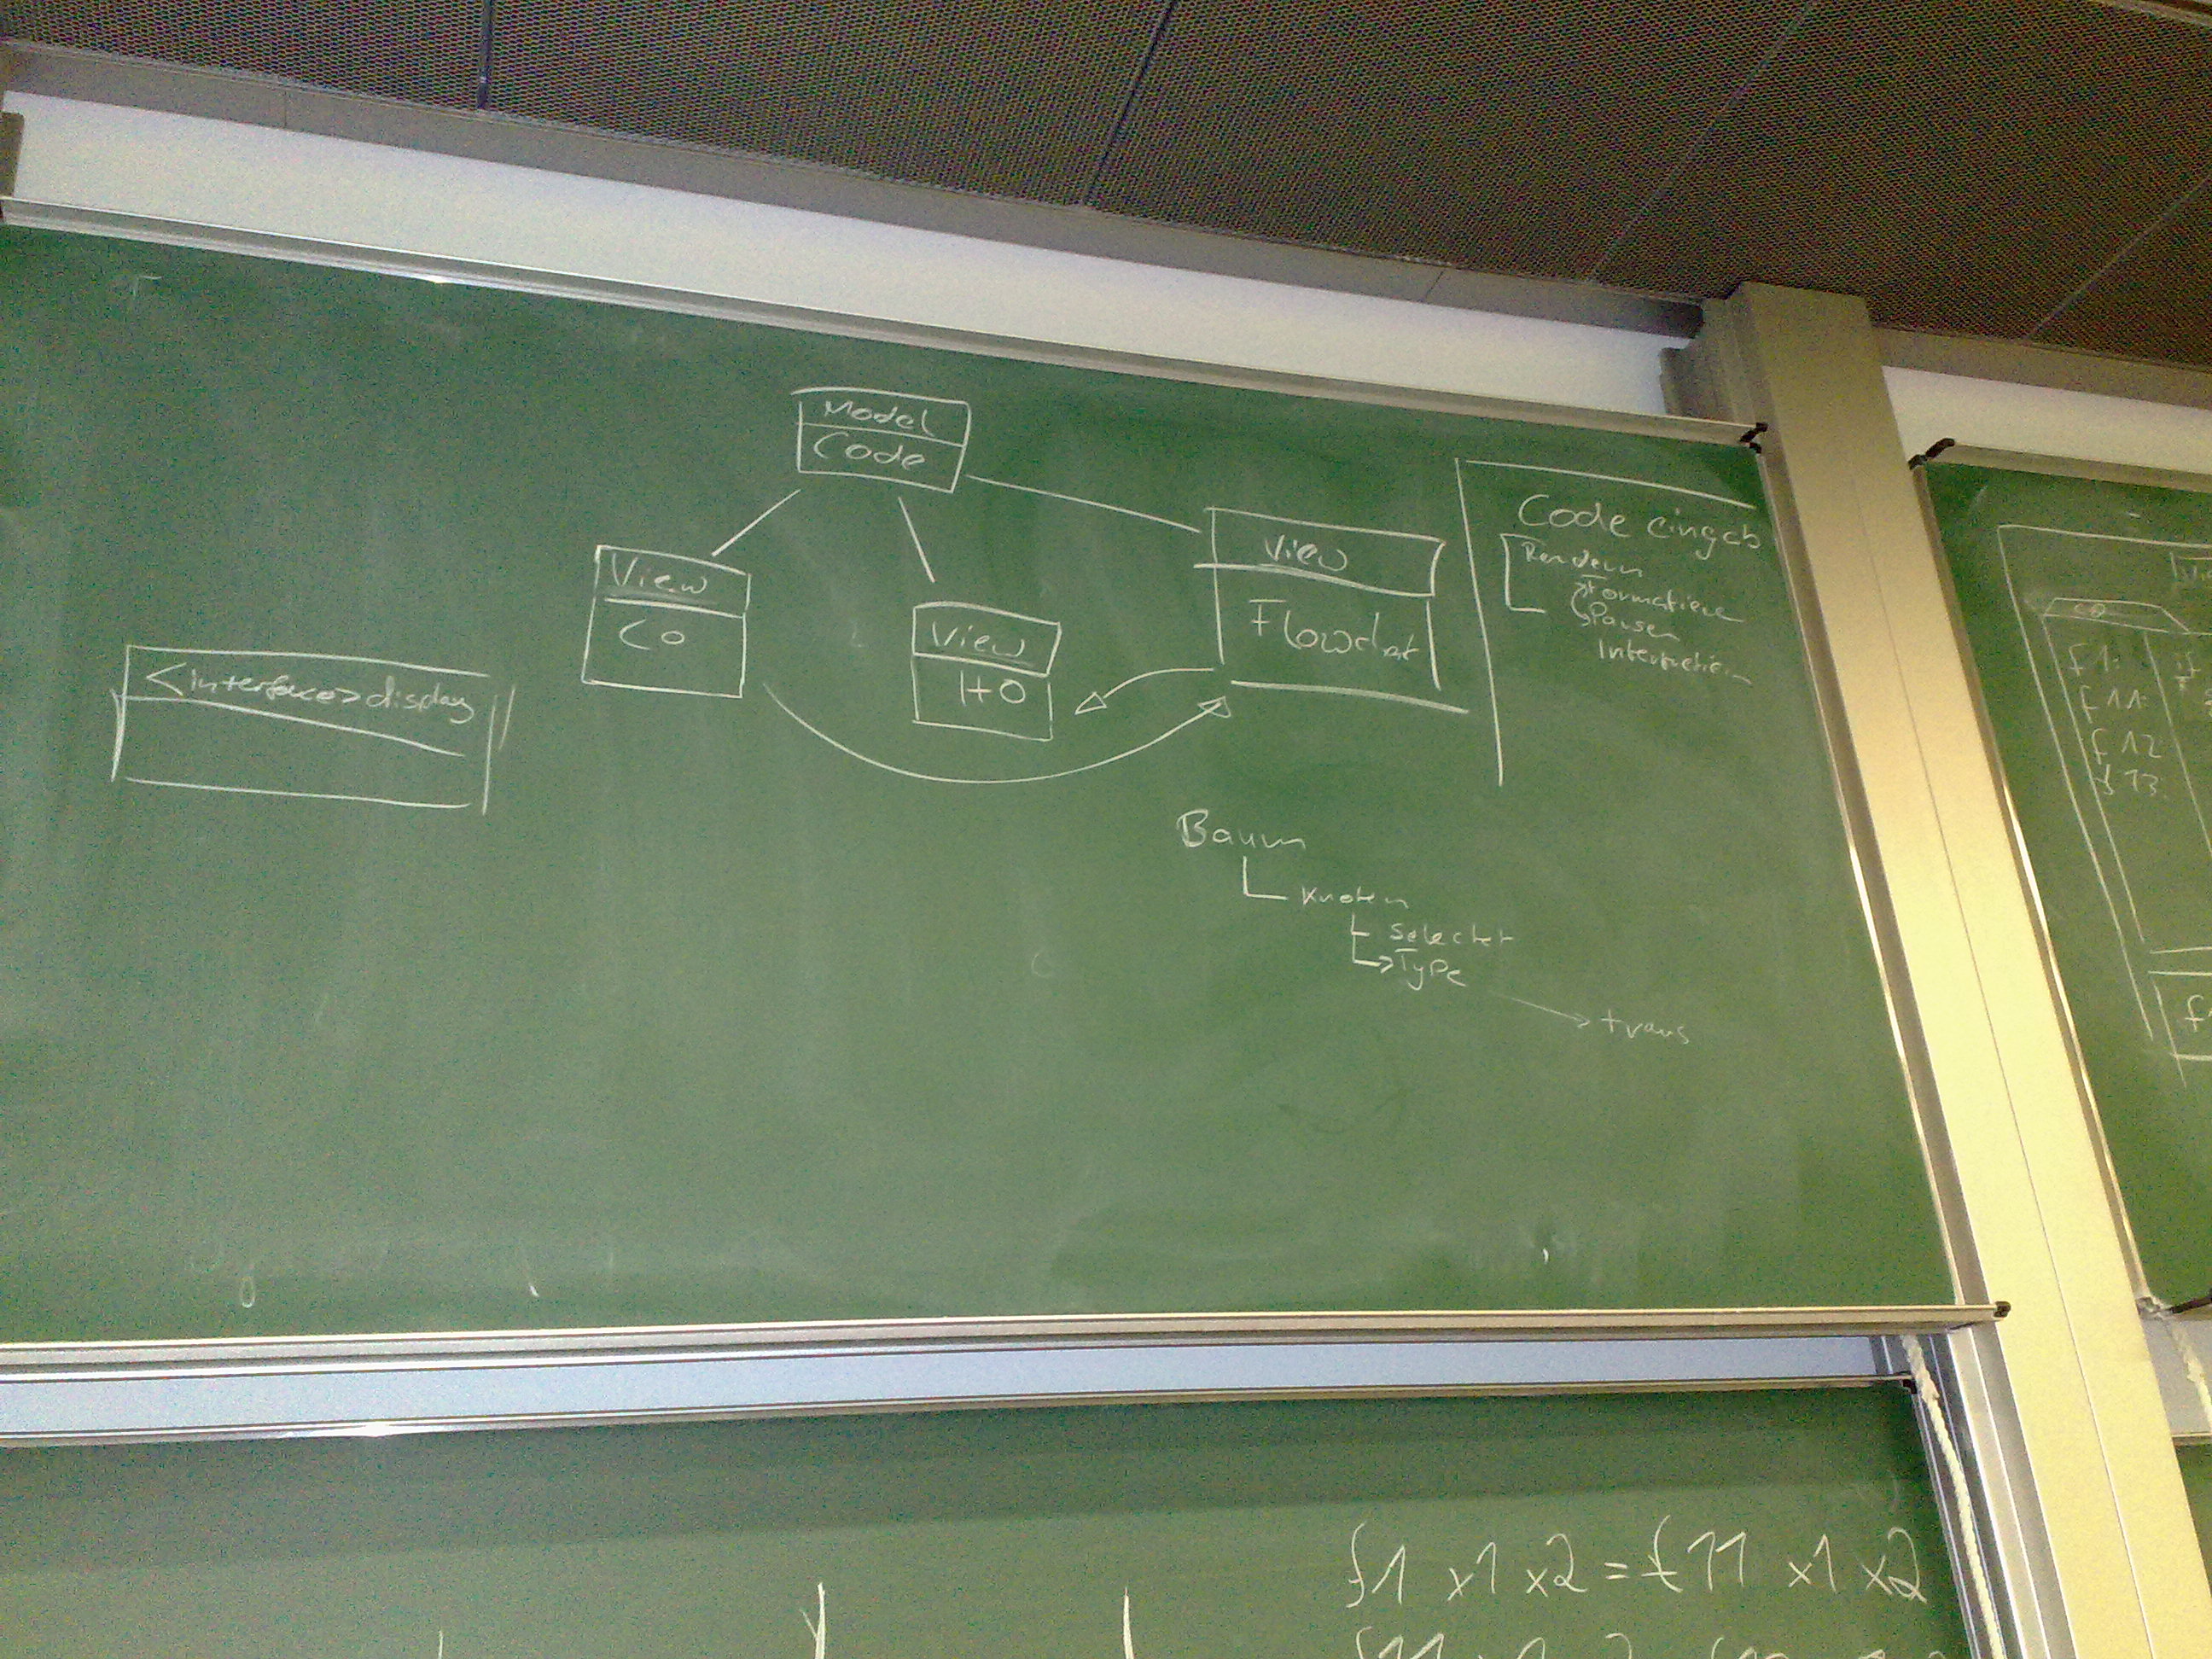 Model
Code
View
CO
View
HO
View
Flowchat
<interface> display
Code eingab
Rendern
Formatiere
Parsen
Baum
Knoten
Selecter
Type
trans
CO
f1:
f11:
f12
f13.
f1 x1 x2 = f11 x1 x2